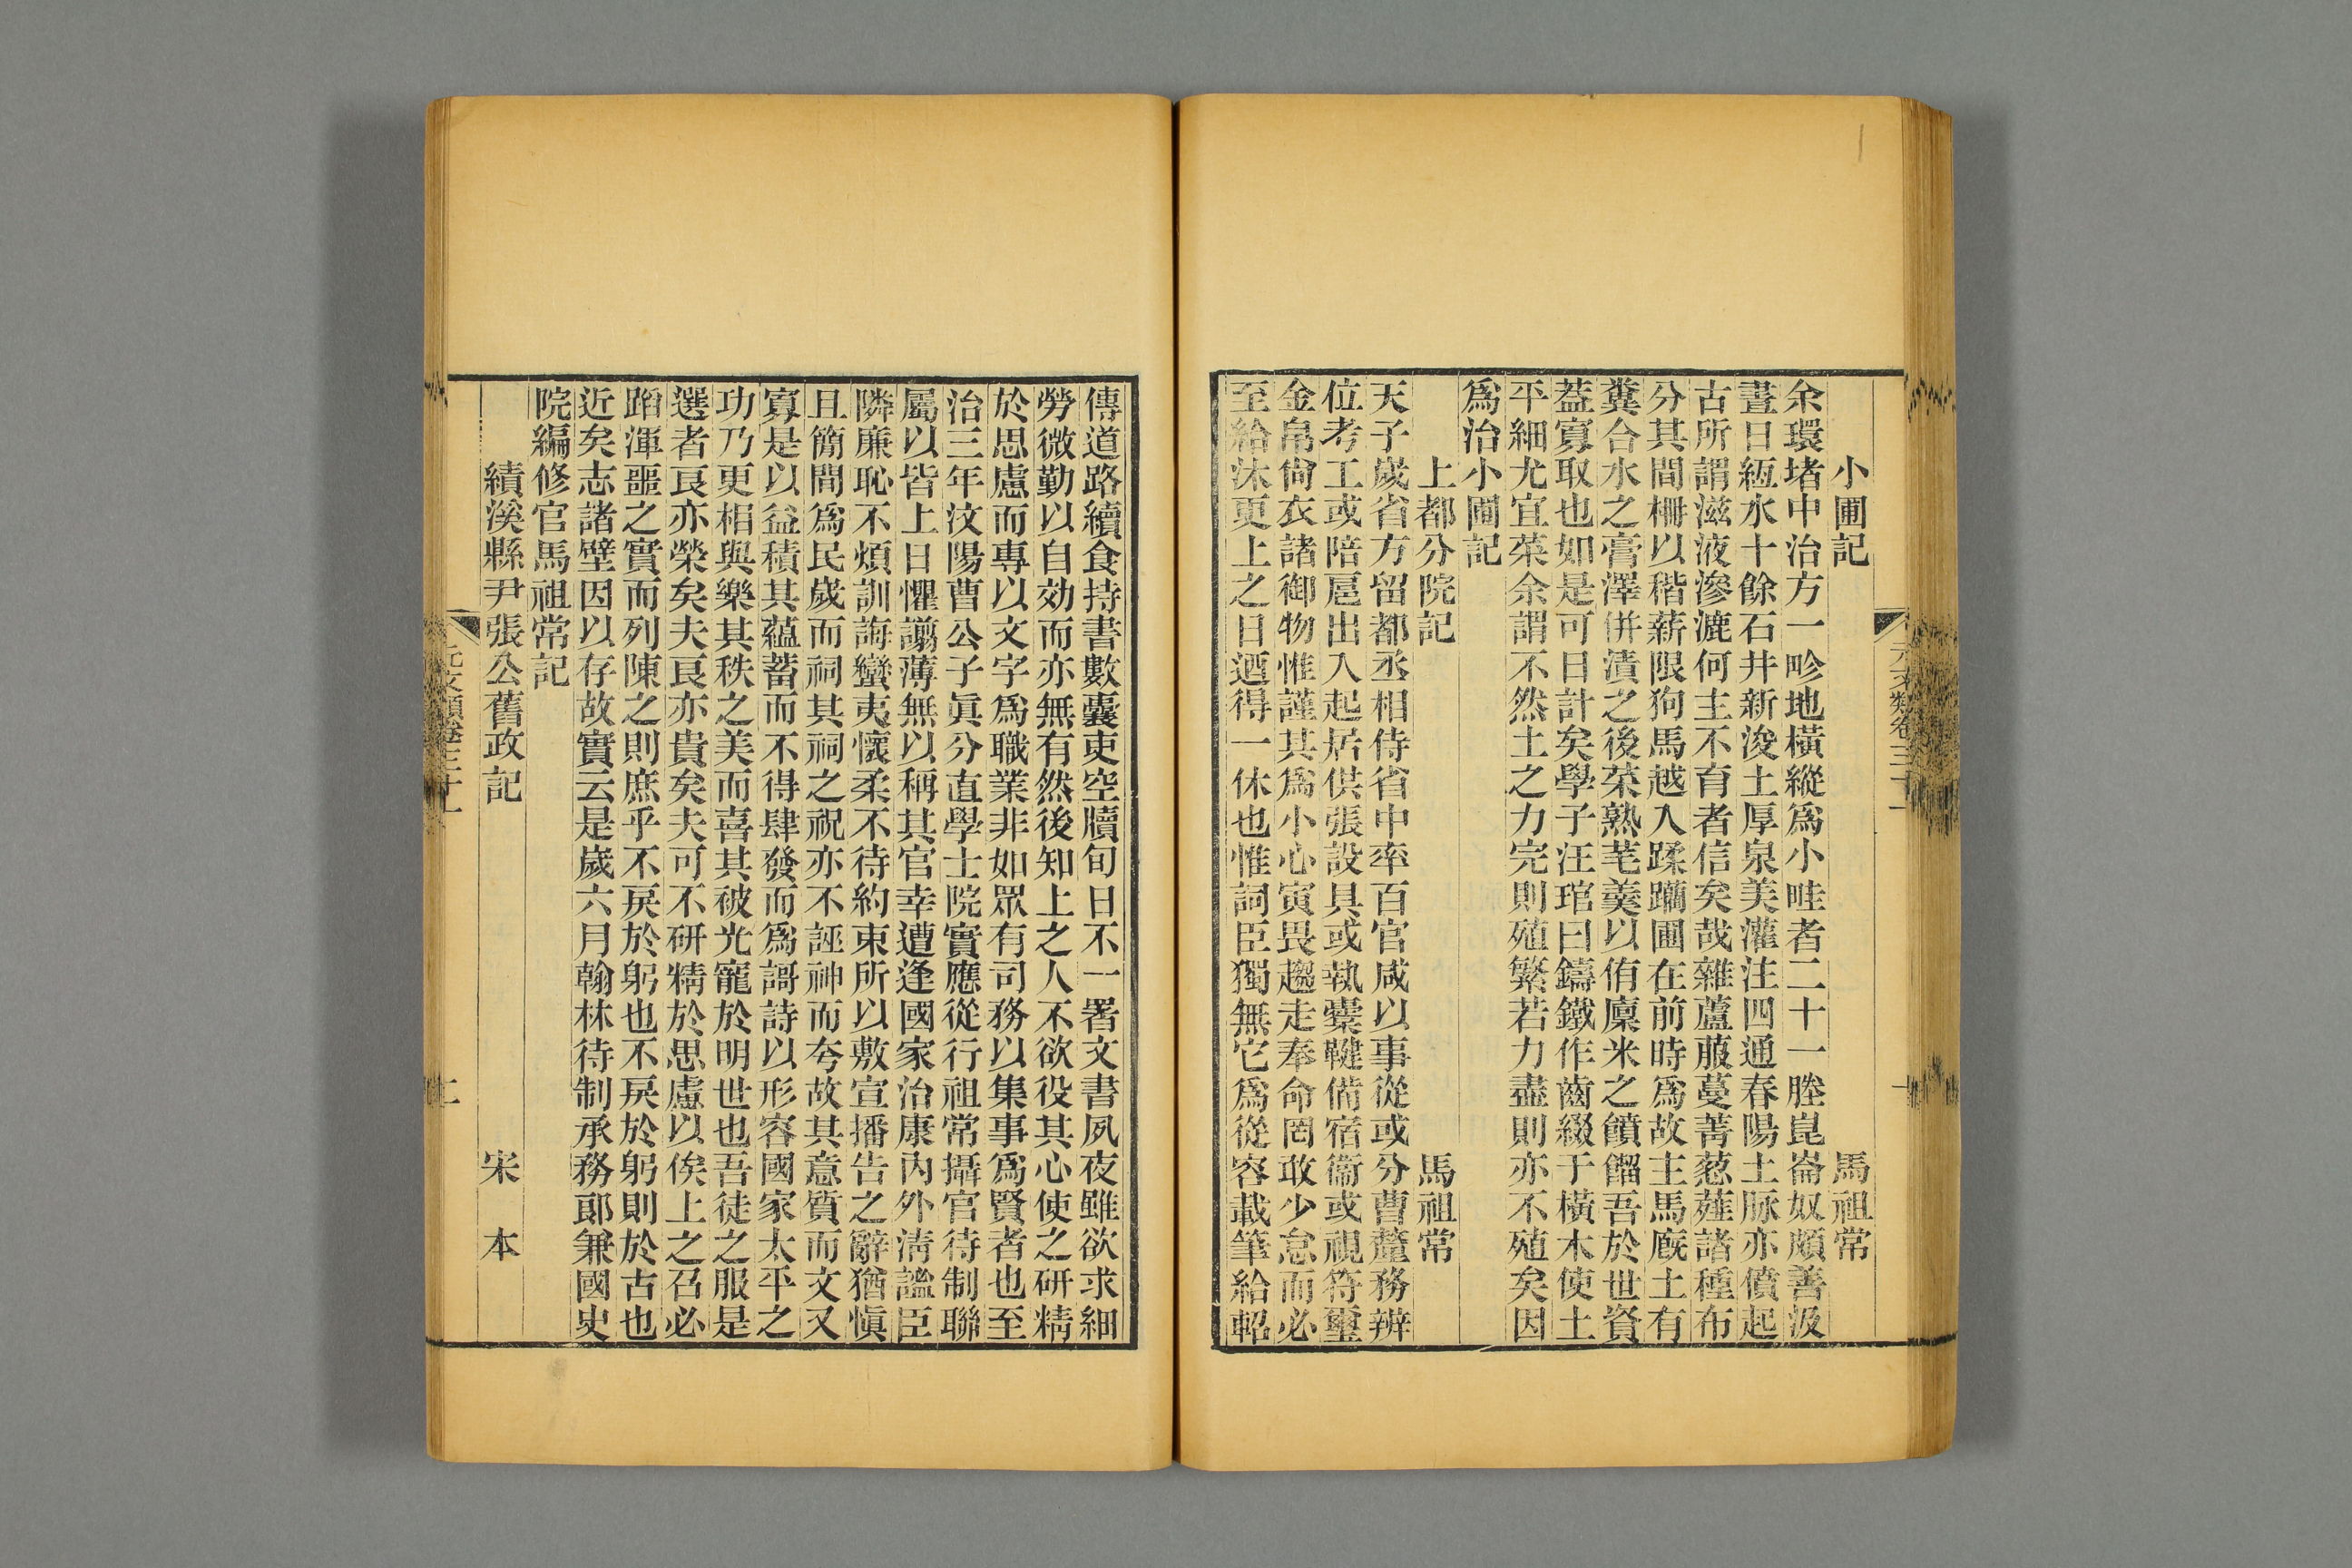 小圃記　馬祖常
余環堵中治方一畛地橫縱爲小畦者二十一塍崑崙奴頗善汲
晝日緪水十餘石井新浚土厚泉美灌注四通春陽土脉亦僨起
古所謂滋液滲漉何主不育者信矣哉雜蘆菔蔓菁葱薤諸種布
分其間柵以稭薪限狗馬越入蹂躪圃在前時爲故主馬廐土有
糞合水之膏澤併漬之後菜熟芼羹以侑廩米之饙餾吾於世資
葢寡取也如是可日計矣學子汪琯曰鑄鐵作齒綴于橫木使土
平細尤宜菜余謂不然土之力完則殖繁若力盡則亦不殖矣因
爲治小圃記
上都分院記　馬祖常
天子歲省方留都丞相侍省中率百官咸以事從或分曹釐務辨
位考工或陪扈出入起居供張設具或執橐鞬備宿衞或視符璽
金帛尙衣諸御物惟謹其爲小心寅畏趨走奉命罔敢少怠而必
至給沐更上之日迺得一休也惟詞臣獨無它爲從容載筆給軺
傳道路續食持書數囊吏空牘旬日不一署文書夙夜雖欲求細
勞微勤以自効而亦無有然後知上之人不欲役其心使之研精
於思慮而專以文字爲職業非如眾有司務以集事爲賢者也至
治三年汶陽曹公子眞分直學士院實應從行祖常攝官待制聯
屬以皆上日懼譾薄無以稱其官幸遭逢國家治康內外淸謐臣
隣廉恥不煩訓誨蠻夷懷柔不待約束所以敷宣播告之辭猶愼
且簡間爲民歲而祠其祠之祝亦不誣神而夸故其意質而文又
寡是以益積其蘊蓄而不得肆發而爲謌詩以形容國家太平之
功乃更相與樂其秩之美而喜其被光寵於明世也吾徒之服是
選者良亦榮矣夫良亦貴矣夫可不研精於思慮以俟上之召必
蹈渾噩之實而列陳之則庶乎不戾於躬也不戾於躬則於古也
近矣志諸壁因以存故實云是歲六月翰林待制承務郎兼國史
院編修官馬祖常記
績溪縣尹張公舊政記　宋　本